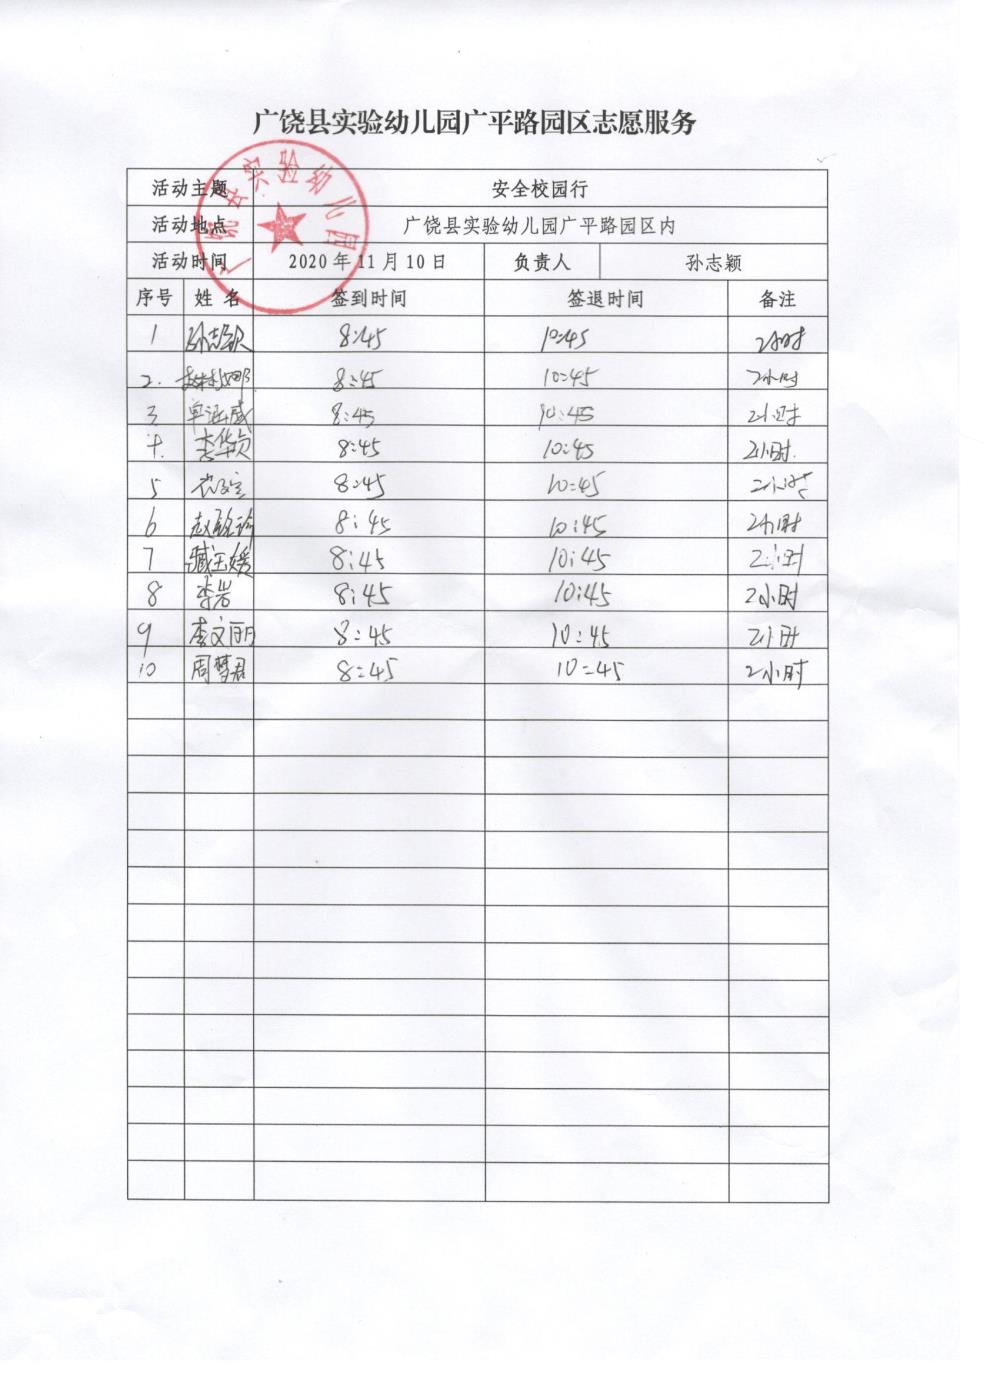 广饶县实验幼儿园广平路园区志愿服务
活动主题 安全校园行
活动地点 广饶县实验幼儿园广平路园区内
活动时间 2020年11月10日 负责人 孙志颖
序号 姓名 签到时间 签退时间 备注
1 8:45 10:45 2小时
2. 8:45 10:45 2小时
3 8:45 10:45 2小时
4. 8:45 10:45 2小时.
5 8:45 10:45 2小时
6 8:45 10:45 2小时
7 8:45 10:45 2小时
8 李岩 8:45 10:45 2小时
9 李文丽 8:45 10:45 2小时
10 周梦君 8:45 10:45 2小时
广饶县实验幼儿园